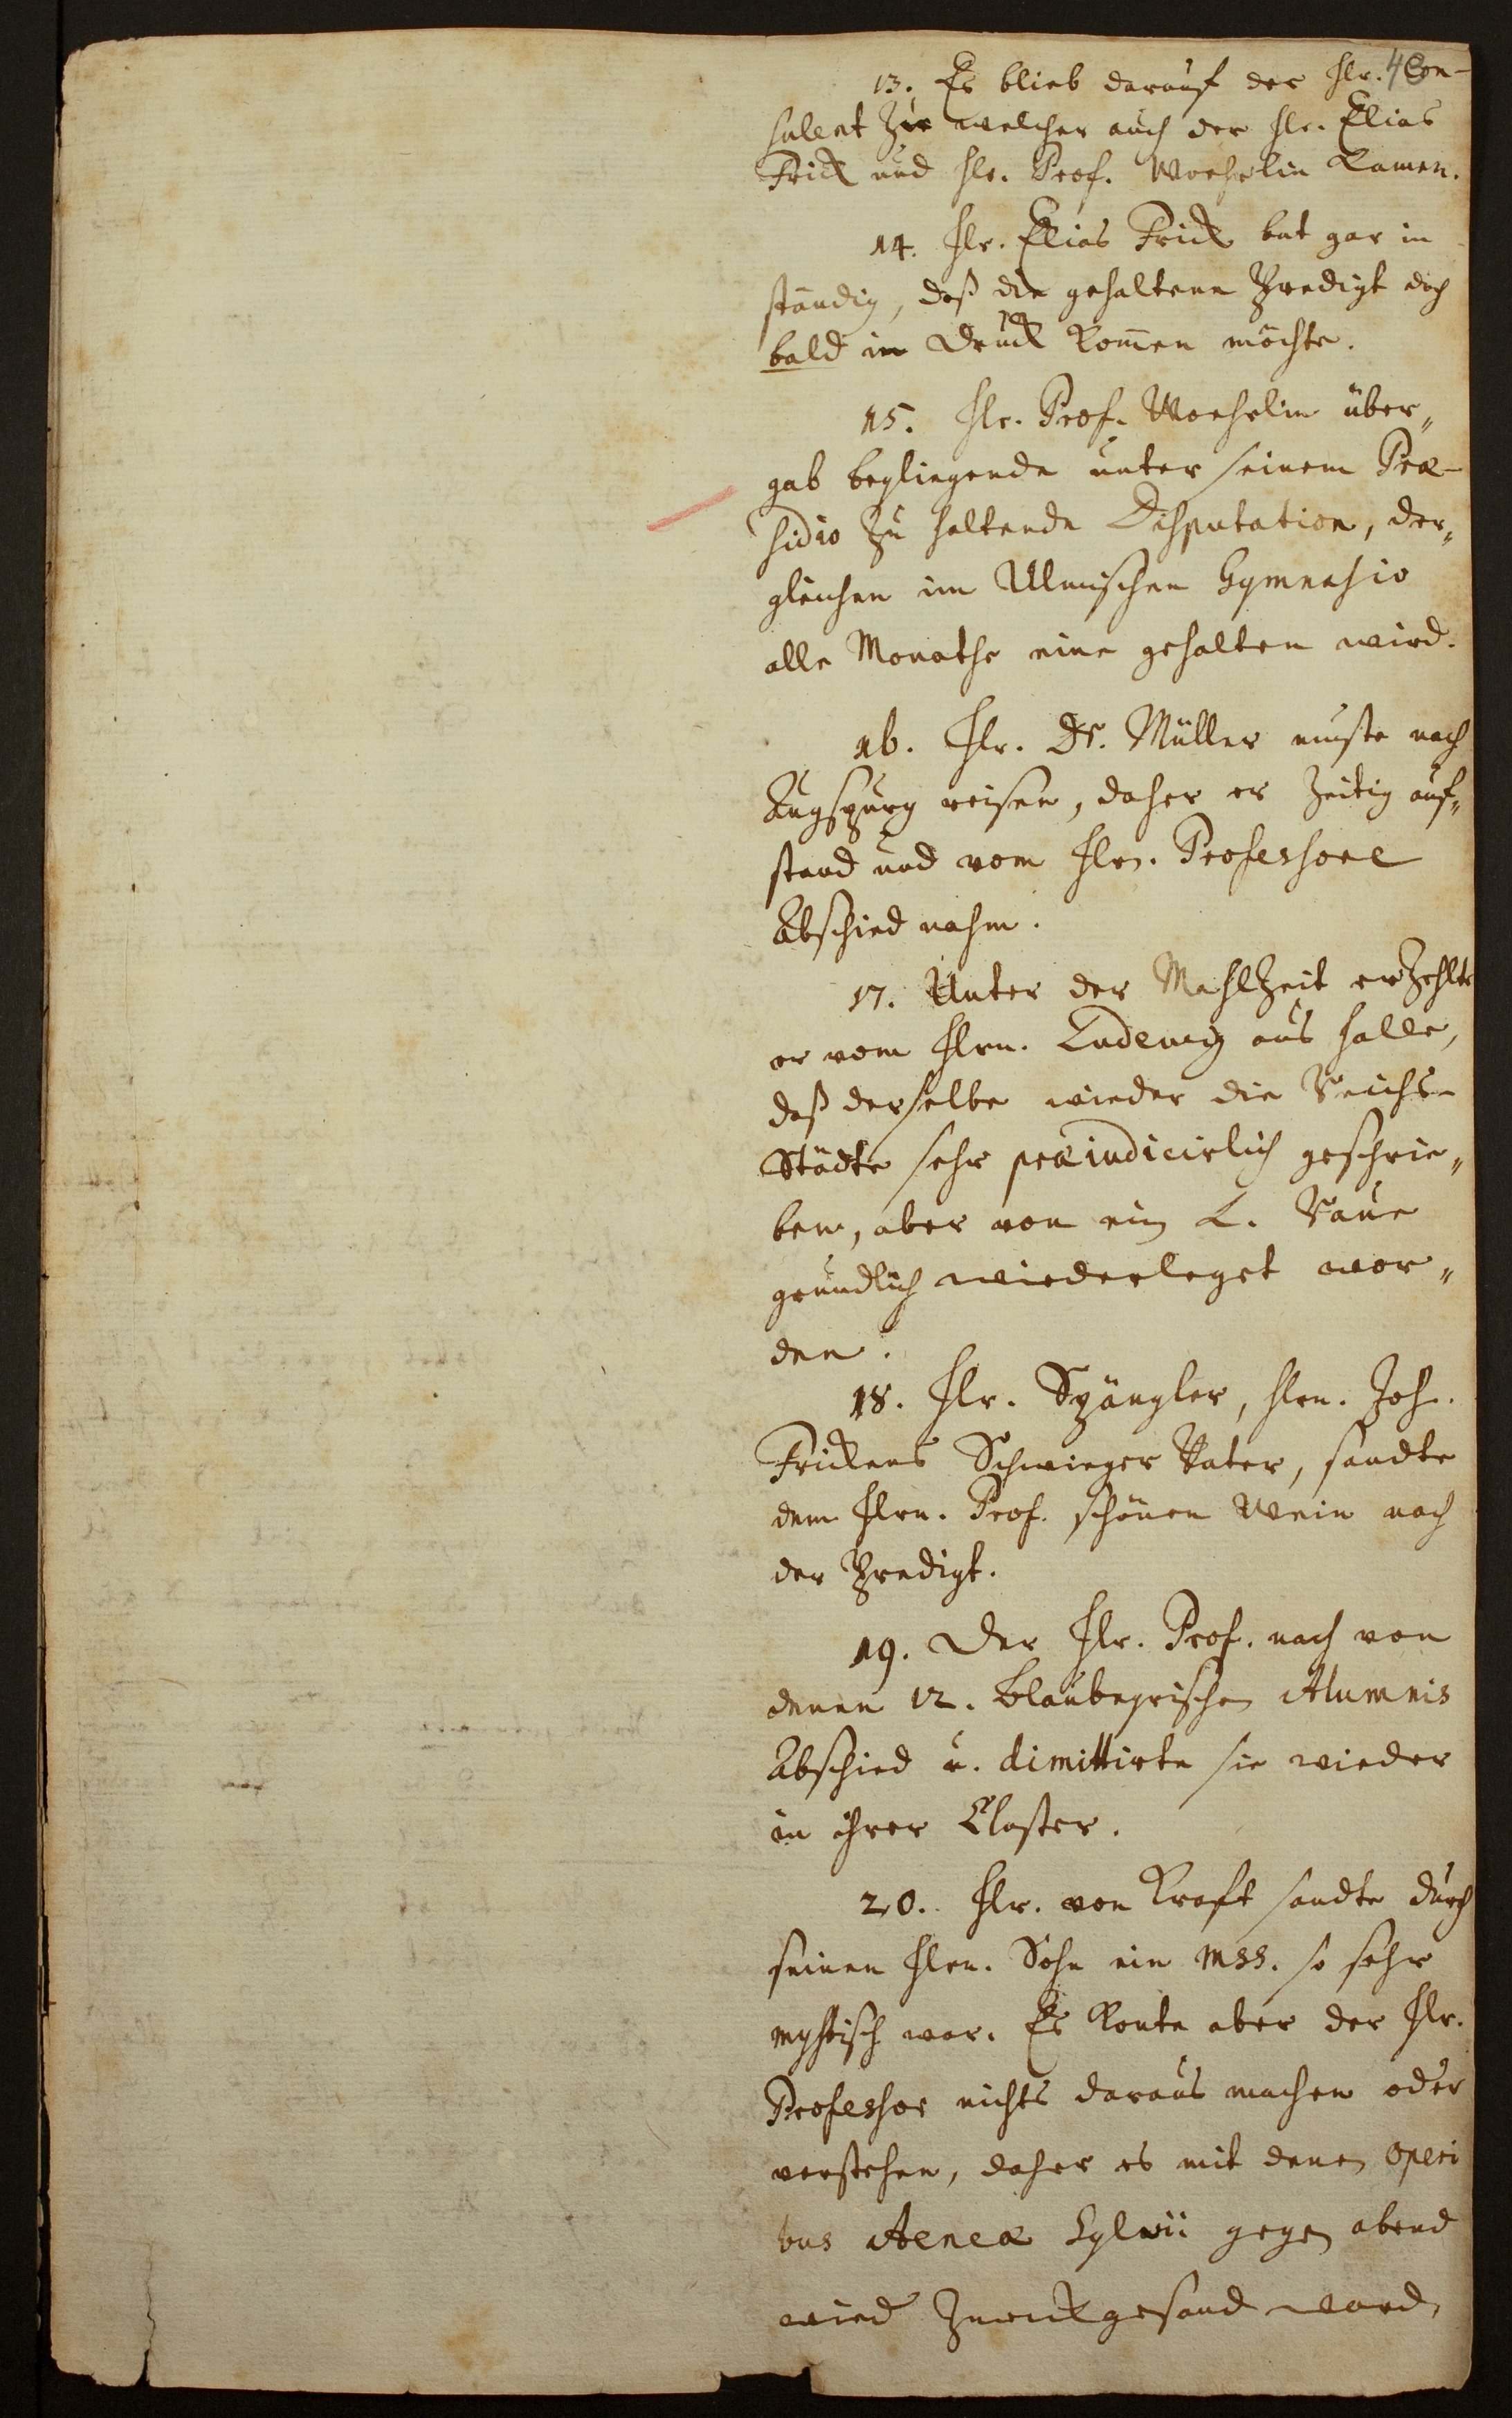 13. Es blieb darauf der Hr. Con-
sulent zu welcher auch der Hr. Elias
Frick und Hr. Prof. Woehrlin kamen.
14. Hr. Elias Frick bat gar in
ständig, daß die gehaltene Predigt doch
bald in Druck kom̄en möchte.
15. Hr. Prof. Woehrlin über„
gab beyliegende unter seinem Præ-
sidio zu haltende Disputation, der„
gleichen im Ulmischen Gymnasio
alle Monathe eine gehalten wird.
16. Hr. Dr. Müller muste nach
Augspurg reisen, daher er zeitig auf„
stand und vom Hrn. Professore
Abschied nahm.
17. Unter der Mahlzeit erzehlte
er vom Hrn. Ludewig aus Halle,
daß derselbe wieder die Reichs-
Städte sehr præiudicirlich geschrie„
ben, aber von
gründlich wiederleget wor„
den.
18. Hr. Spängler, Hrn. Joh.
Frickens Schwieger Vater, sandte
dem Hrn. Prof. schönen Wein nach
der Predigt.
19. Der Hr. Prof. nach von
denen 12. Blaubeyrischen Alumnis
Abschied u. dimittirte sie wieder
in ihrer Closter.
20. Hr. von Kraft sandte durch
seinen Hrn. Sohn ein MSS. so sehr
mystisch war. Es konte aber der Hr.
Professor nichts daraus machen oder
verstehen, daher es mit denen operi
bus Aeneæ Sylvii gegen abend
wied zurückgesand word.